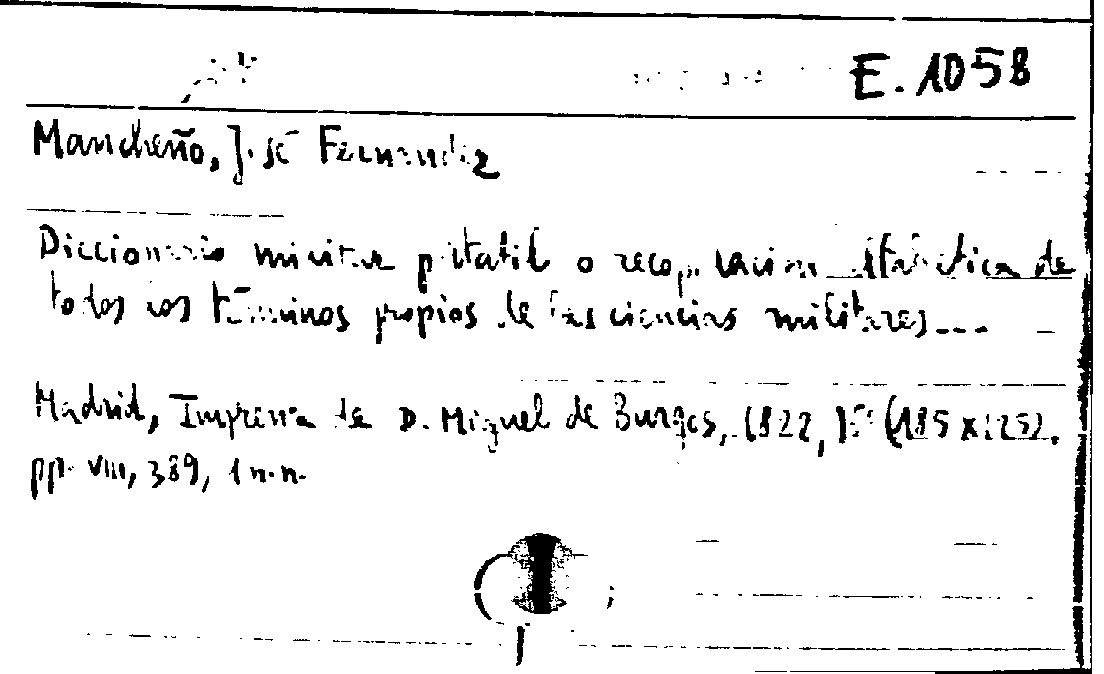 E. 1058
Mancheño, José Fernandez
Diccionario militar portatil o recopilacion alfabetica de
todos los términos propios de las ciencias militares...
Madrid, Imprenta de D. Miguel de Burgos, 1822, (185 x 125).
pp. VIII, 389, 1 n.n.